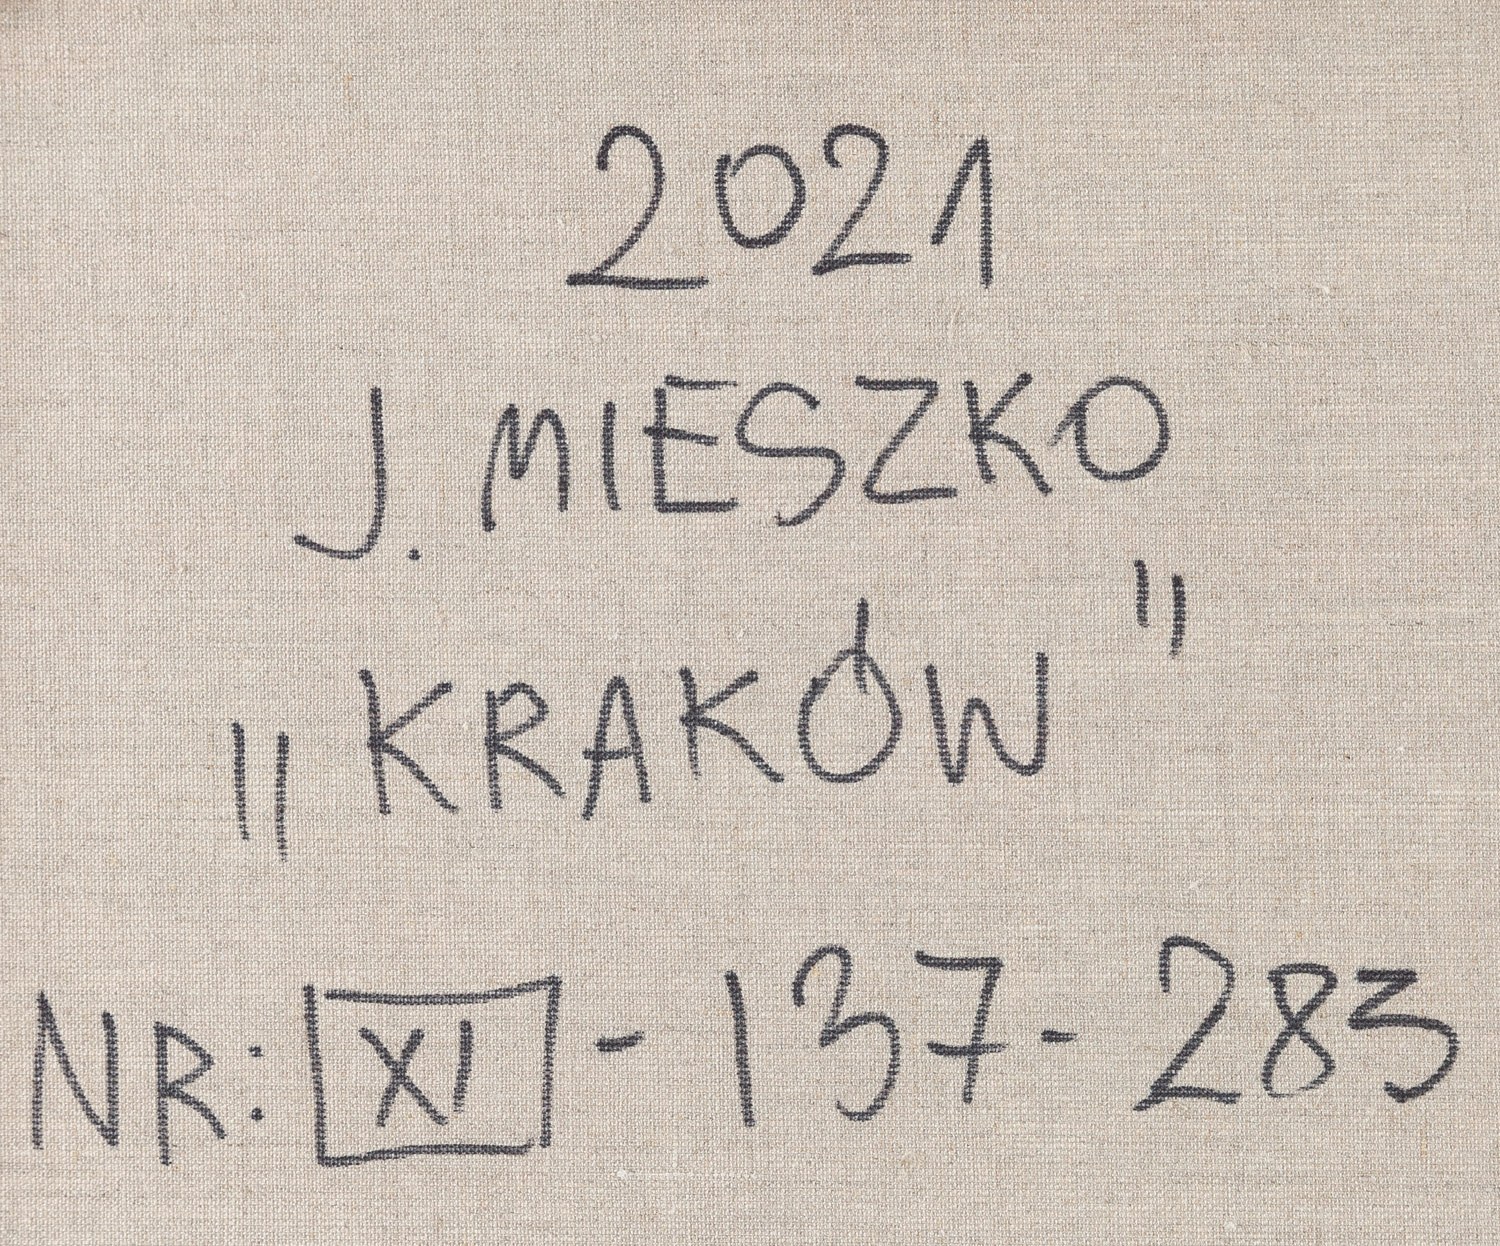 2021
J. MIESZKO
"KRAKÓW"
NR: XI - 137 - 283